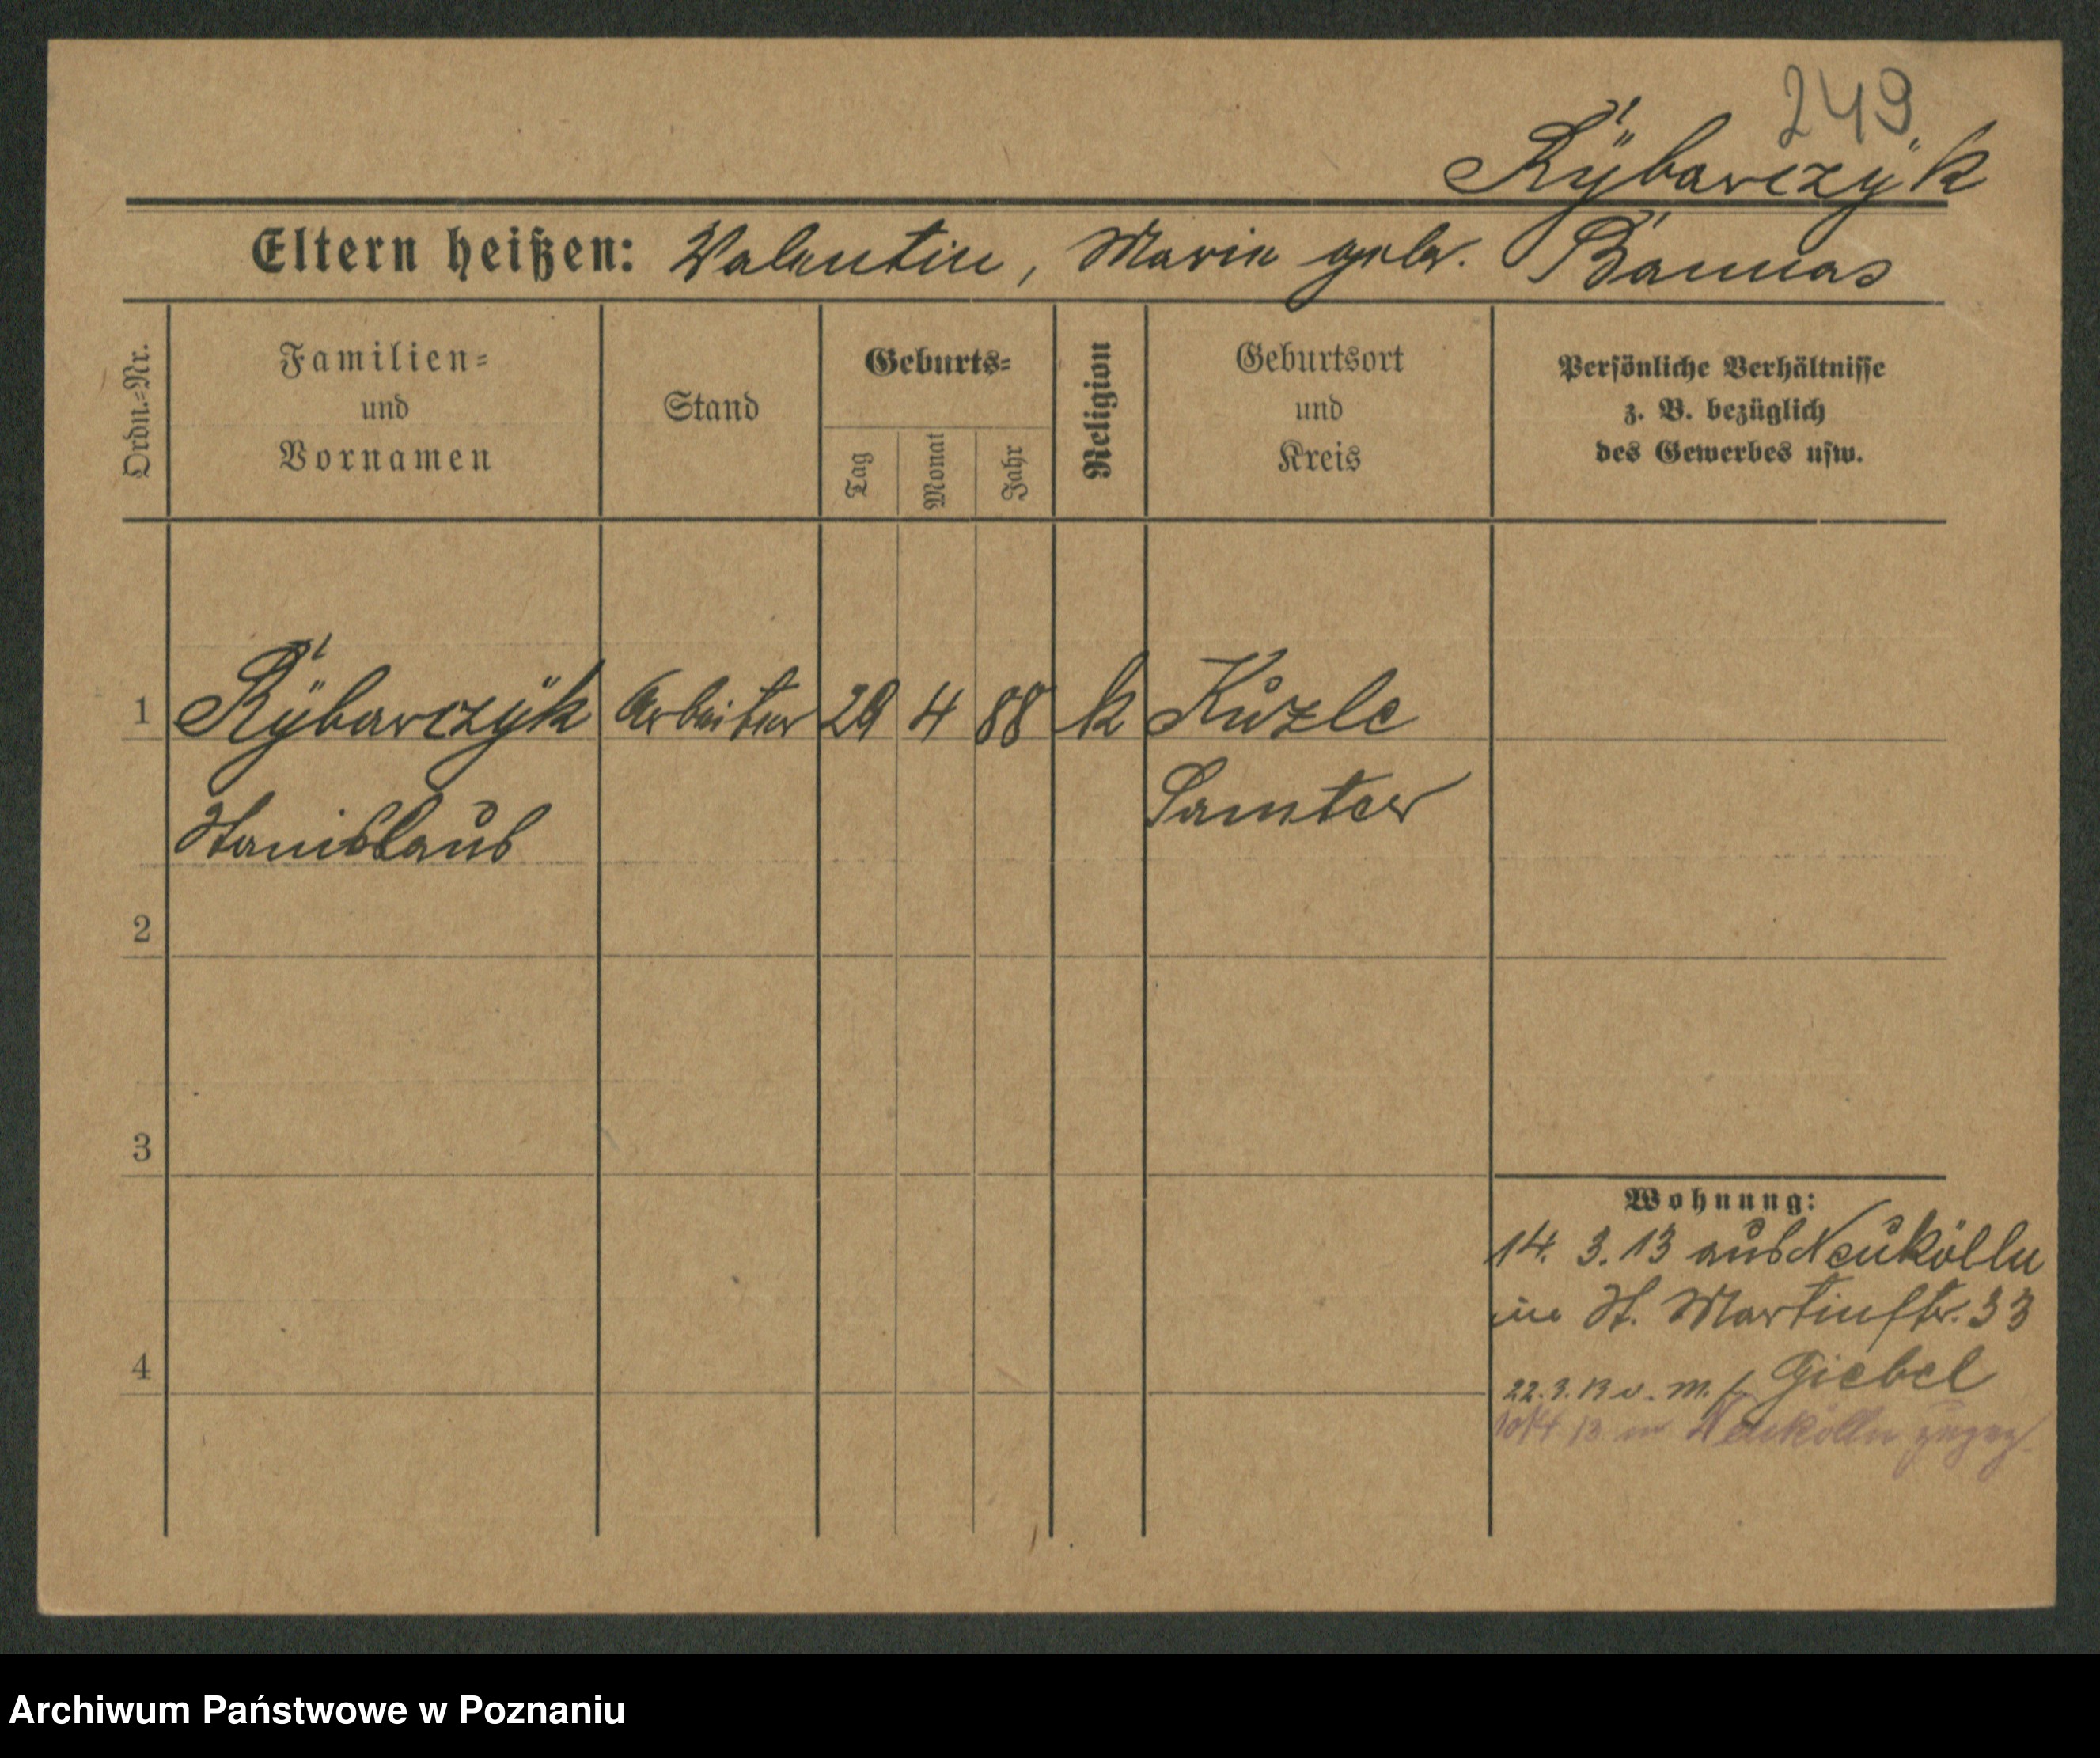 249
Rÿbarczÿk
Eltern heißen: Valentin, Marie gebr. Bannas
Ordn.=Nr.
Familien= und Vornamen
Stand
Geburts=
Tag
Monat
Jahr
Religion
Geburtsort und Kreis
Persönliche Verhältnisse
z. B. bezüglich
des Gewerbes usw.
1 Rÿbarczÿk Arbeiter 29 4 88 k Kuzle
Stanislaus Samter
2
3
4
Wohnung:
14. 3. 13 aus Neukölln
in St. Martinstr. 33
22. 3. 13 v. M. f. Giebel
13 in Neukölln zugez.
Archiwum Państwowe w Poznaniu